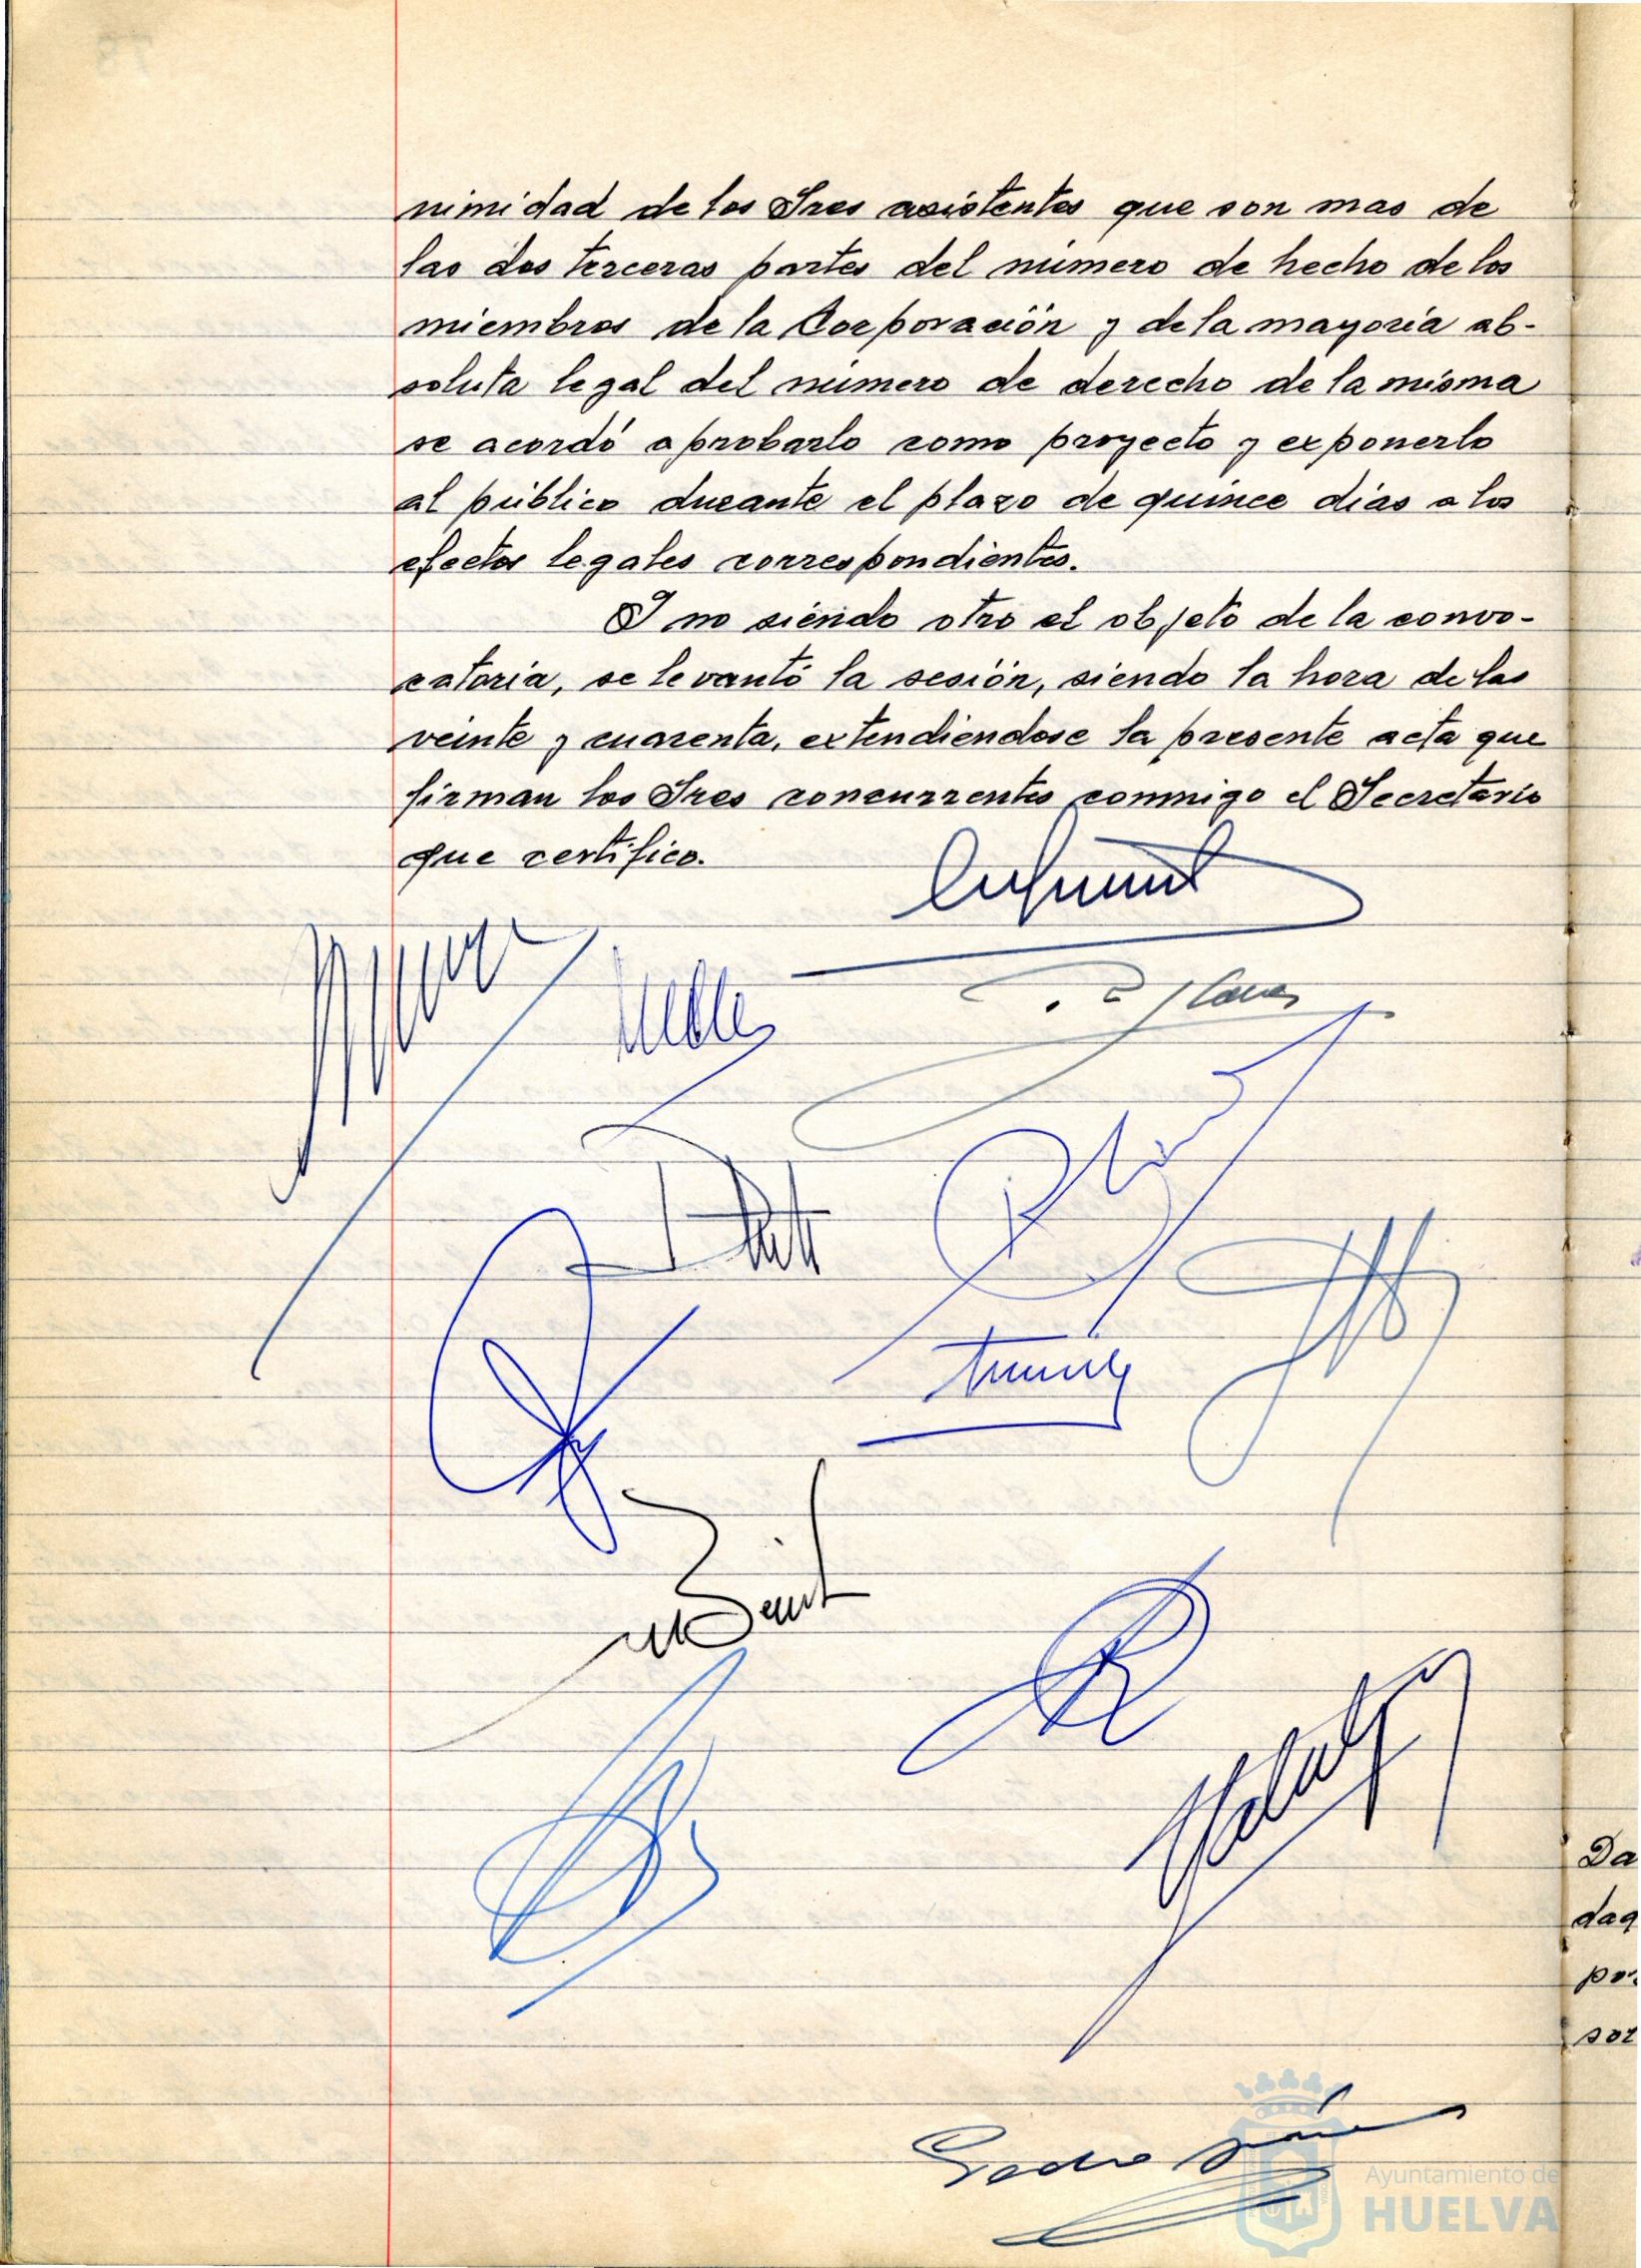 nimidad de los Sres asistentes que son mas de
las dos terceras partes del número de hecho de los
miembros de la Corporación y de la mayoria ab-
soluta legal del número de derecho de la misma
se acordó aprobarlo como proyecto y exponerlo
al público durante el plazo de quince dias a los
efectos legales correspondientes.
Y no siendo otro el objeto de la convo-
catoria, se levantó la sesión, siendo la hora de las
veinte y cuarenta, extendiéndose la presente acta que
firman los Sres concurrentes conmigo el Secretario
que certifico.
Pedro
Da
daq
po
sor
Ayuntamiento de
HUELVA